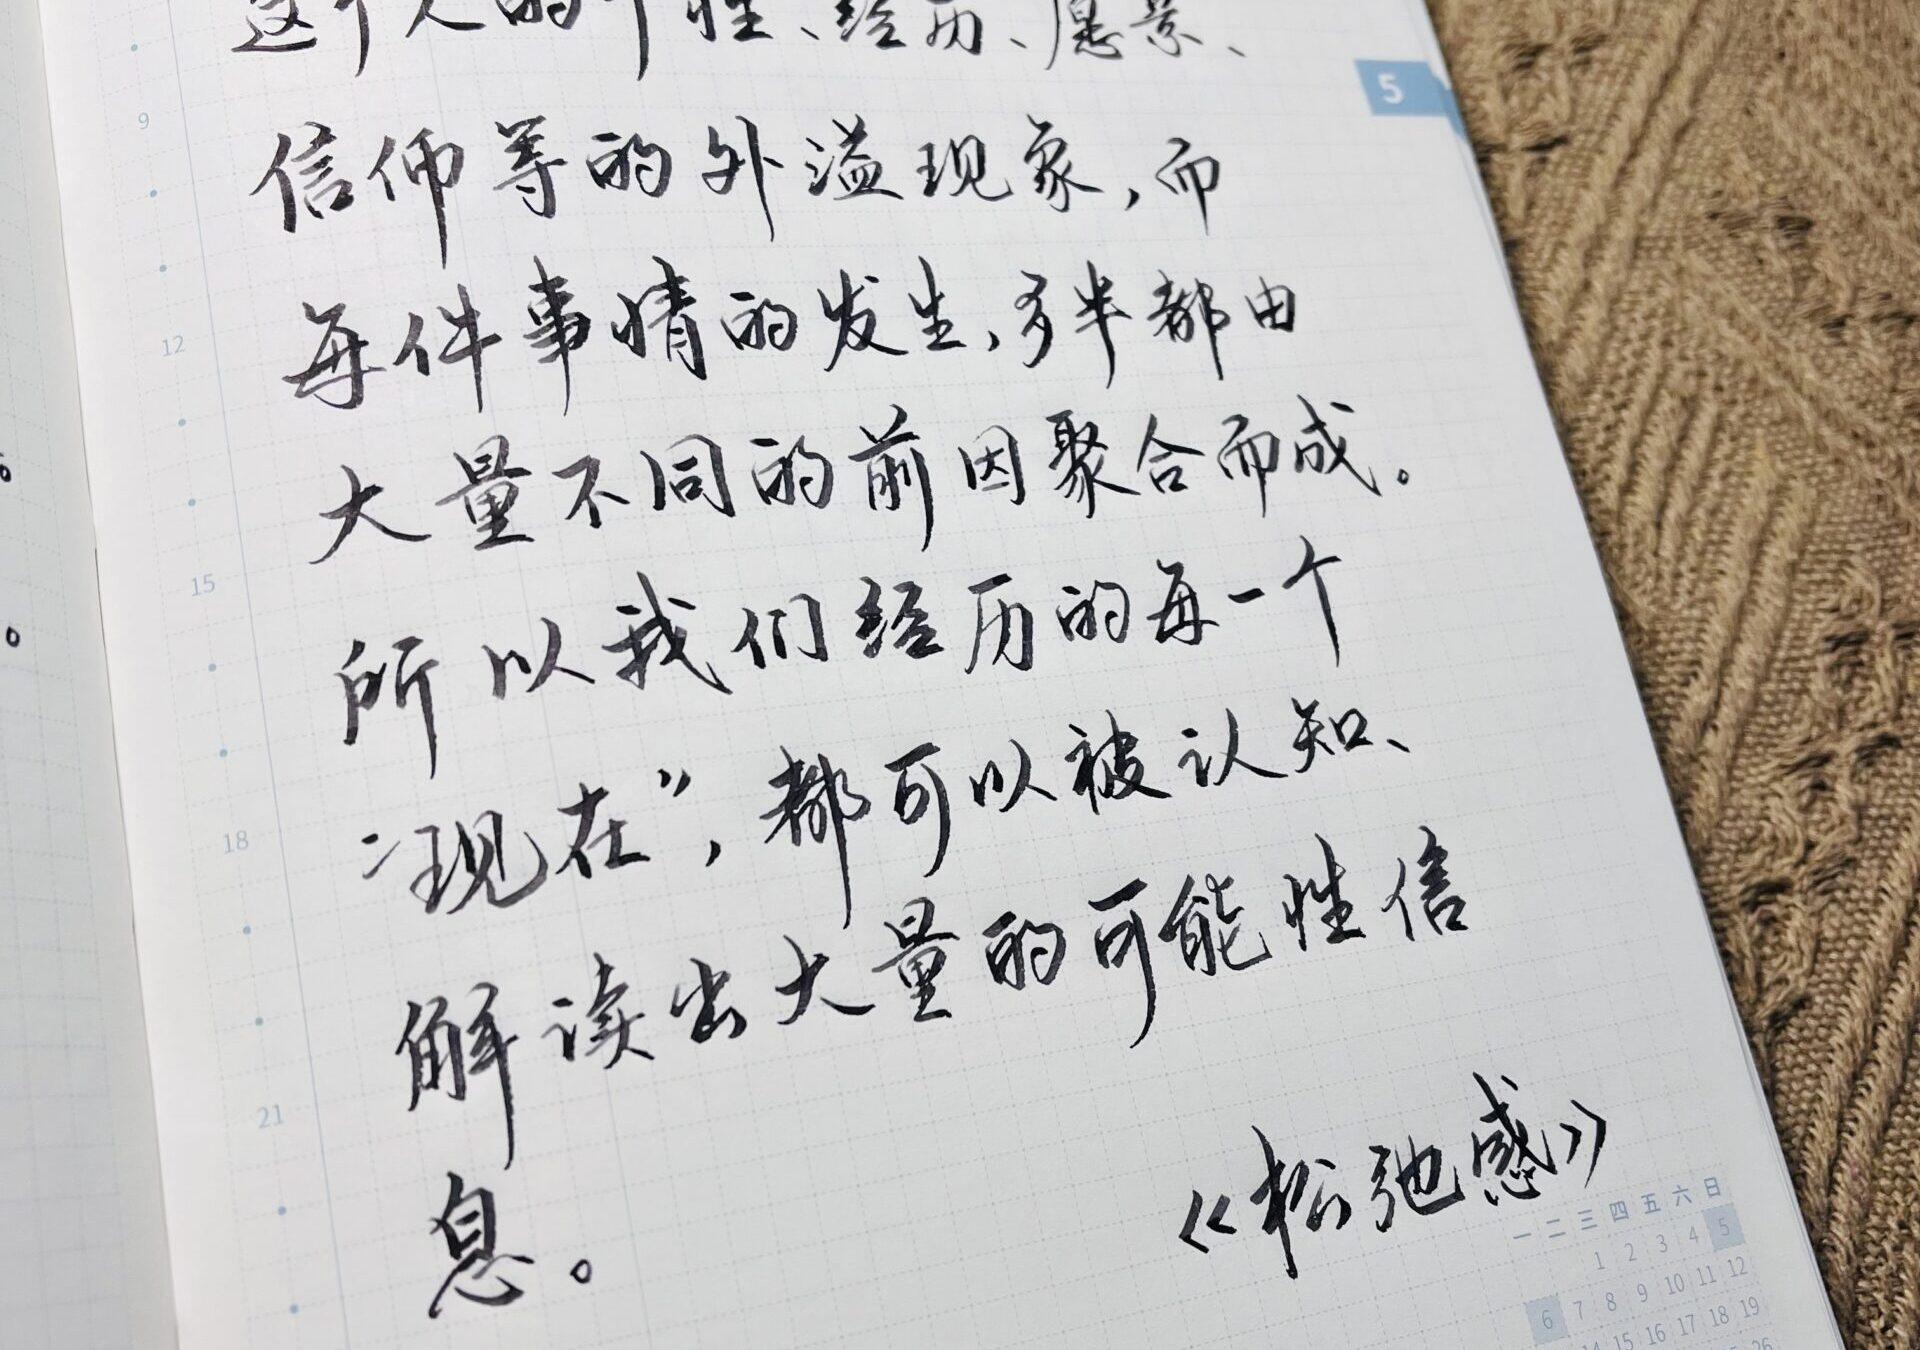 这个人的个性、经历、愿景、
5
9
信仰等的外溢现象,而
每件事情的发生,多半都由
12
大量不同的前因聚合而成。
15
所以我们经历的每一个
“现在”,都可以被认知、
18
解读出大量的可能性信
21
息。
《松弛感》
一 二 三 四 五 六 日
1 2 3 4 5
6 7 8 9 10 11 12
14 15 16 17 18 19
26